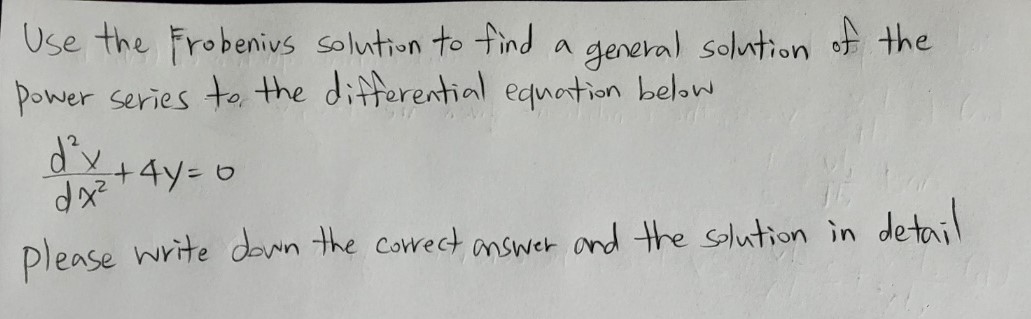 Use the Frobenius solution to find a general solution of the
Power series to the differential equation below
d²y/dx² + 4y = 0
please write down the correct answer and the solution in detail